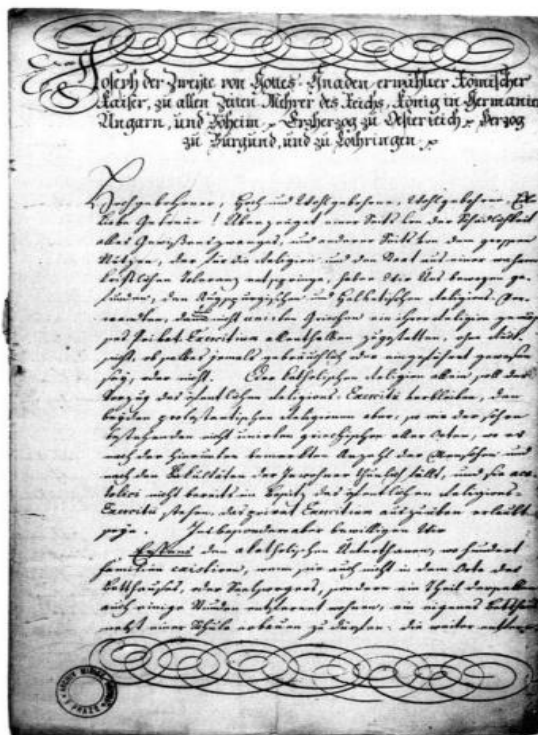 Joseph der Zweÿte von Gottes Gnaden erwählter Römischer
Kaiser, zu allen Zeiten Mehrer des Reichs, König in Germanien
Ungarn, und Böheim, Erzherzog zu Oesterreich, Herzog
zu Burgund, und zu Lothringen
Hochgebohrner, Hoch und Wohlgebohrne, Wohlgebohrne,
Liebe Getreue! Überzeuget einer Seits von der Schädlichkeit
alles Gewißenszwanges, und anderer Seits von dem grossen
Nützen, der für die Religion und den Staat aus einer wahren
christlichen Toleranz entspringe, haben Wir Uns bewogen ge-
funden, den Augspurgischen und Helvetischen Religions-Ver-
wandten, dann nicht unirten Griechen ein ihrer Religion gemäs-
ses Privat-Exercitium allenthalben zugestatten, ohne
nicht, ob selbes jemals gebräuchlich oder eingeführt gewesen
seÿ, oder nicht. Der katholischen Religion allein soll der
Vorzug des öffentlichen Religions-Exercitii verbleiben, den
beÿden protestantischen Religionen aber, so wie der schon
bestehenden nicht unirten griechischen aller Orten, wo es
nach der hierunten bemerkten Anzahl der Menschen und
nach den Fakultäten der Inwohner thunlich fällt, und sie aca-
tolici nicht bereits im Besitz des öffentlichen Religions-
Exercitii stehen, das privat Exercitium auszuüben erlaubt
seÿn. Insbesondere aber bewilligen Wir
Erstens den akatholischen Unterthanen, wo hundert
familien existiren, wenn sie auch nicht in dem Orte des
Betthauses, oder Seelsorgers, sondern ein Theil derselben
auch einige Stunden entfernt wohnen, ein eigenes Betthaus
nebst einer Schule erbauen zu dürfen. die weiter